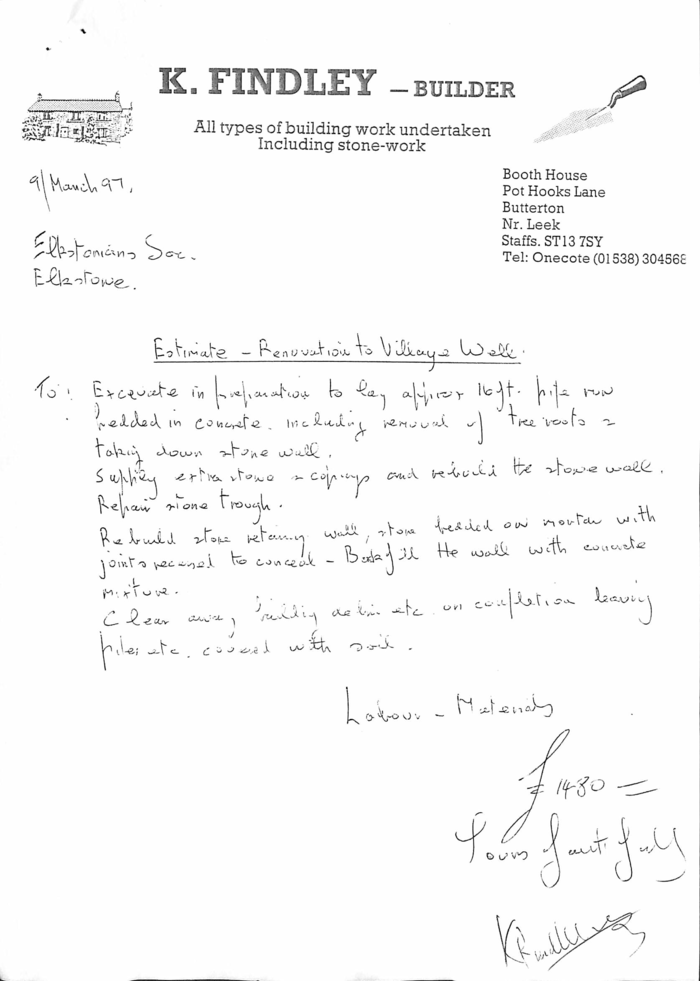 K. FINDLEY – BUILDER
All types of building work undertaken
Including stone-work
Booth House
Pot Hooks Lane
Butterton
Nr. Leek
Staffs. ST13 7SY
Tel: Onecote (01538) 304568
9/March 97.
Elkstonians Soc.
Elkstone.
Estimate – Renovation to Village Well.
To: Excavate in preparation to lay approx 16ft. pipe run
bedded in concrete. including removal of tree roots &
taking down stone wall.
Supply extra stone & copings and rebuild the stone wall.
Repair stone trough.
Rebuild stone retaining wall, stone bedded on mortar with
joints recessed to conceal – Backfill the wall with concrete
mixture.
Clear away building debris etc. on completion leaving
pipes etc. covered with soil.
Labour – Materials
£ 1430 =
Yours faithfully
K Findley